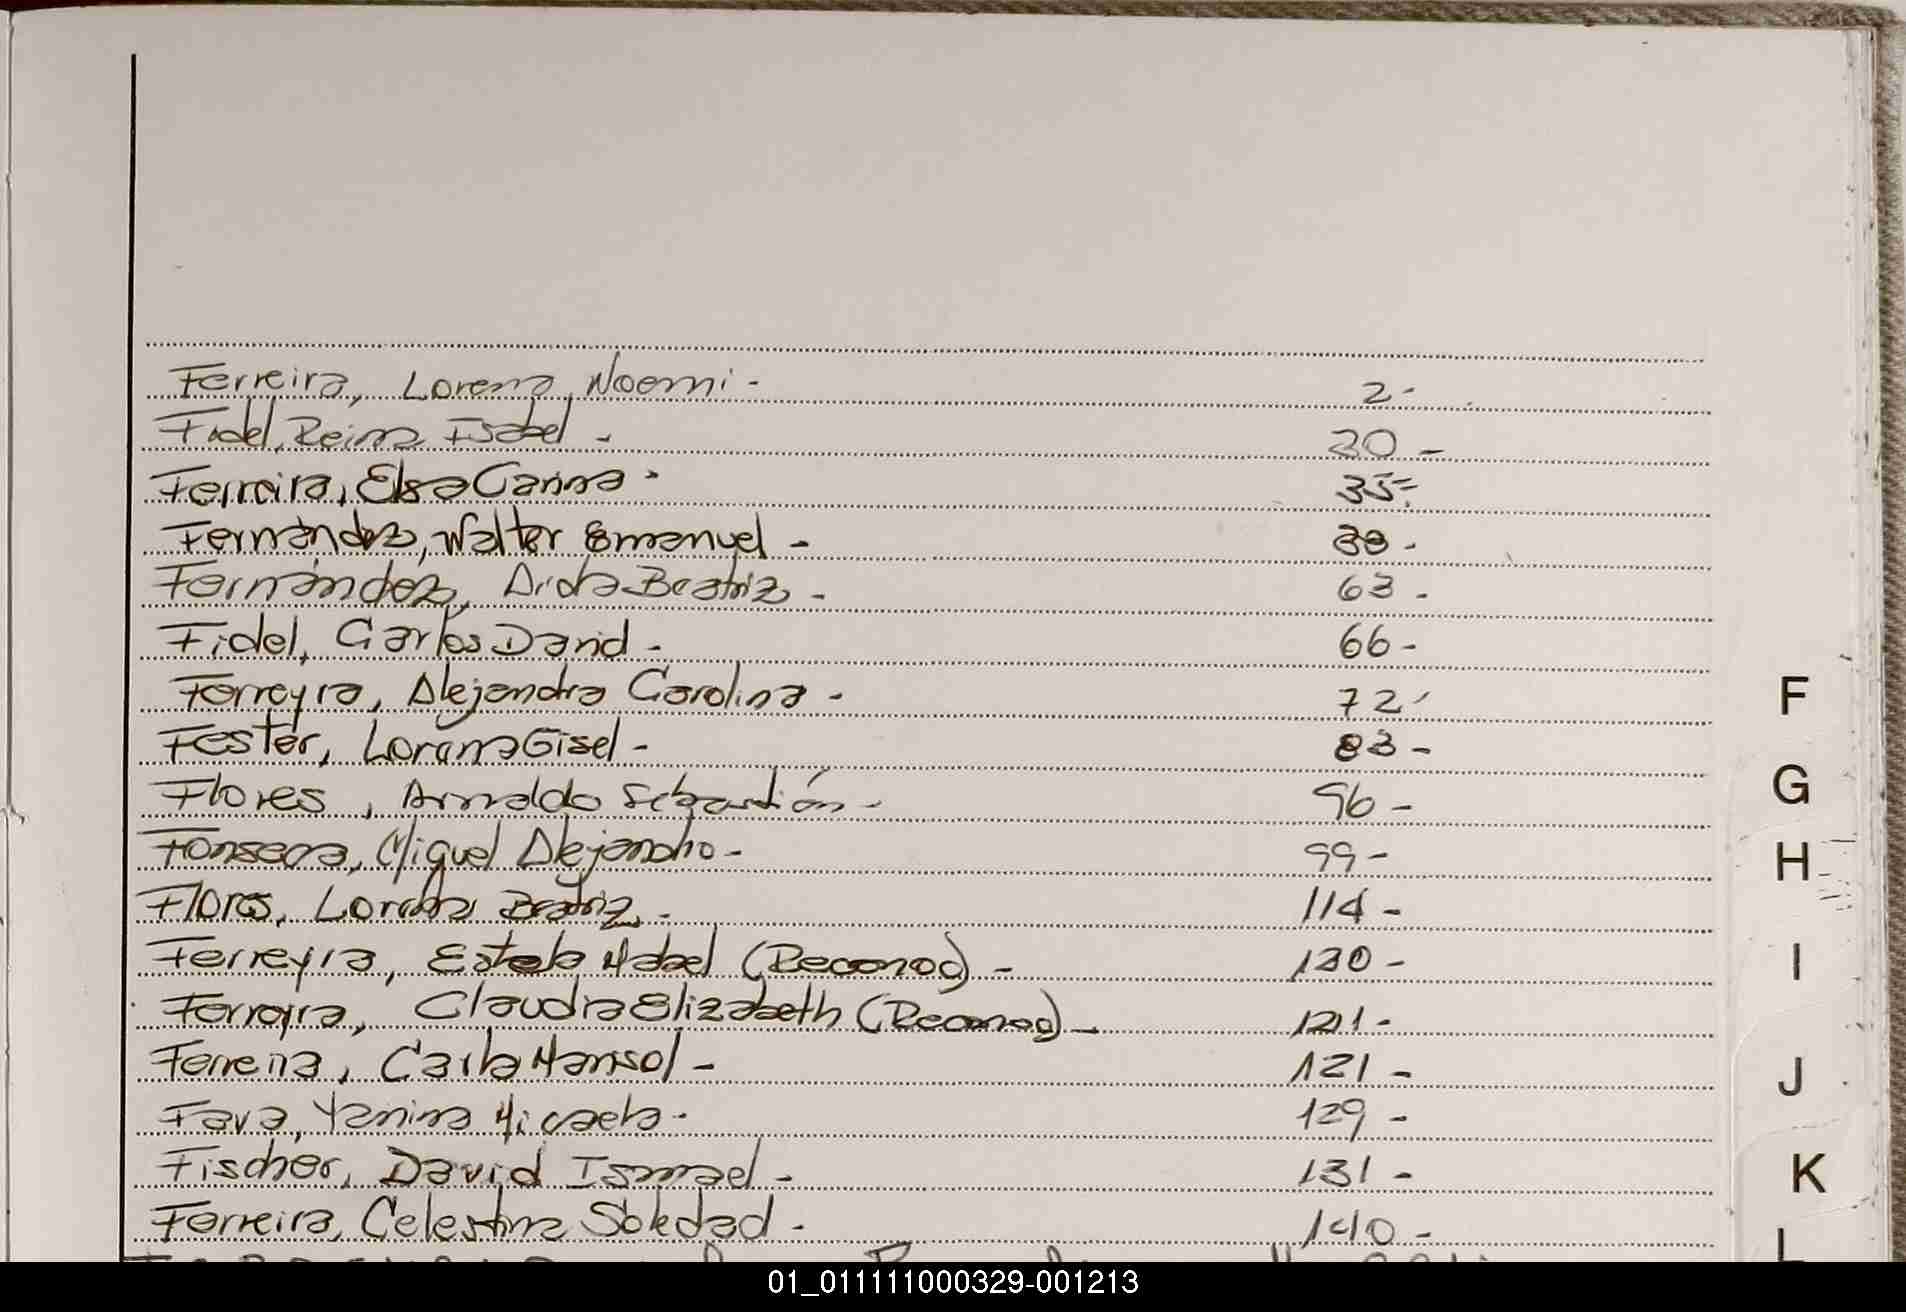 Ferreira, Lorena Noemi - 2 -
Fidel, Reina Isabel - 30 -
Ferreira, Elsa Carina - 35 =
Fernández, Walter Emanuel - 38 -
Fernández, Aida Beatriz - 63 -
Fidel, Carlos David - 66 -
Ferreyra, Alejandra Carolina - 72 -
Fester, Lorena Gisel - 83 -
Flores, Arnaldo Sebastián - 96 -
Fonseca, Miguel Alejandro - 99 -
Flores, Lorena Beatriz - 114 -
Ferreyra, Estela Mabel (Reconoc) -
Ferreyra, Claudia Elizabeth (Reconoc) -
Ferreira, Carla Marisol - 121 -
Fava, Yanina Micaela - 129 -
Fischer, David Ismael - 131 -
Ferreira, Celestina Soledad - 140 -
F
G
H
I
J
K
L
01_011111000329-001213